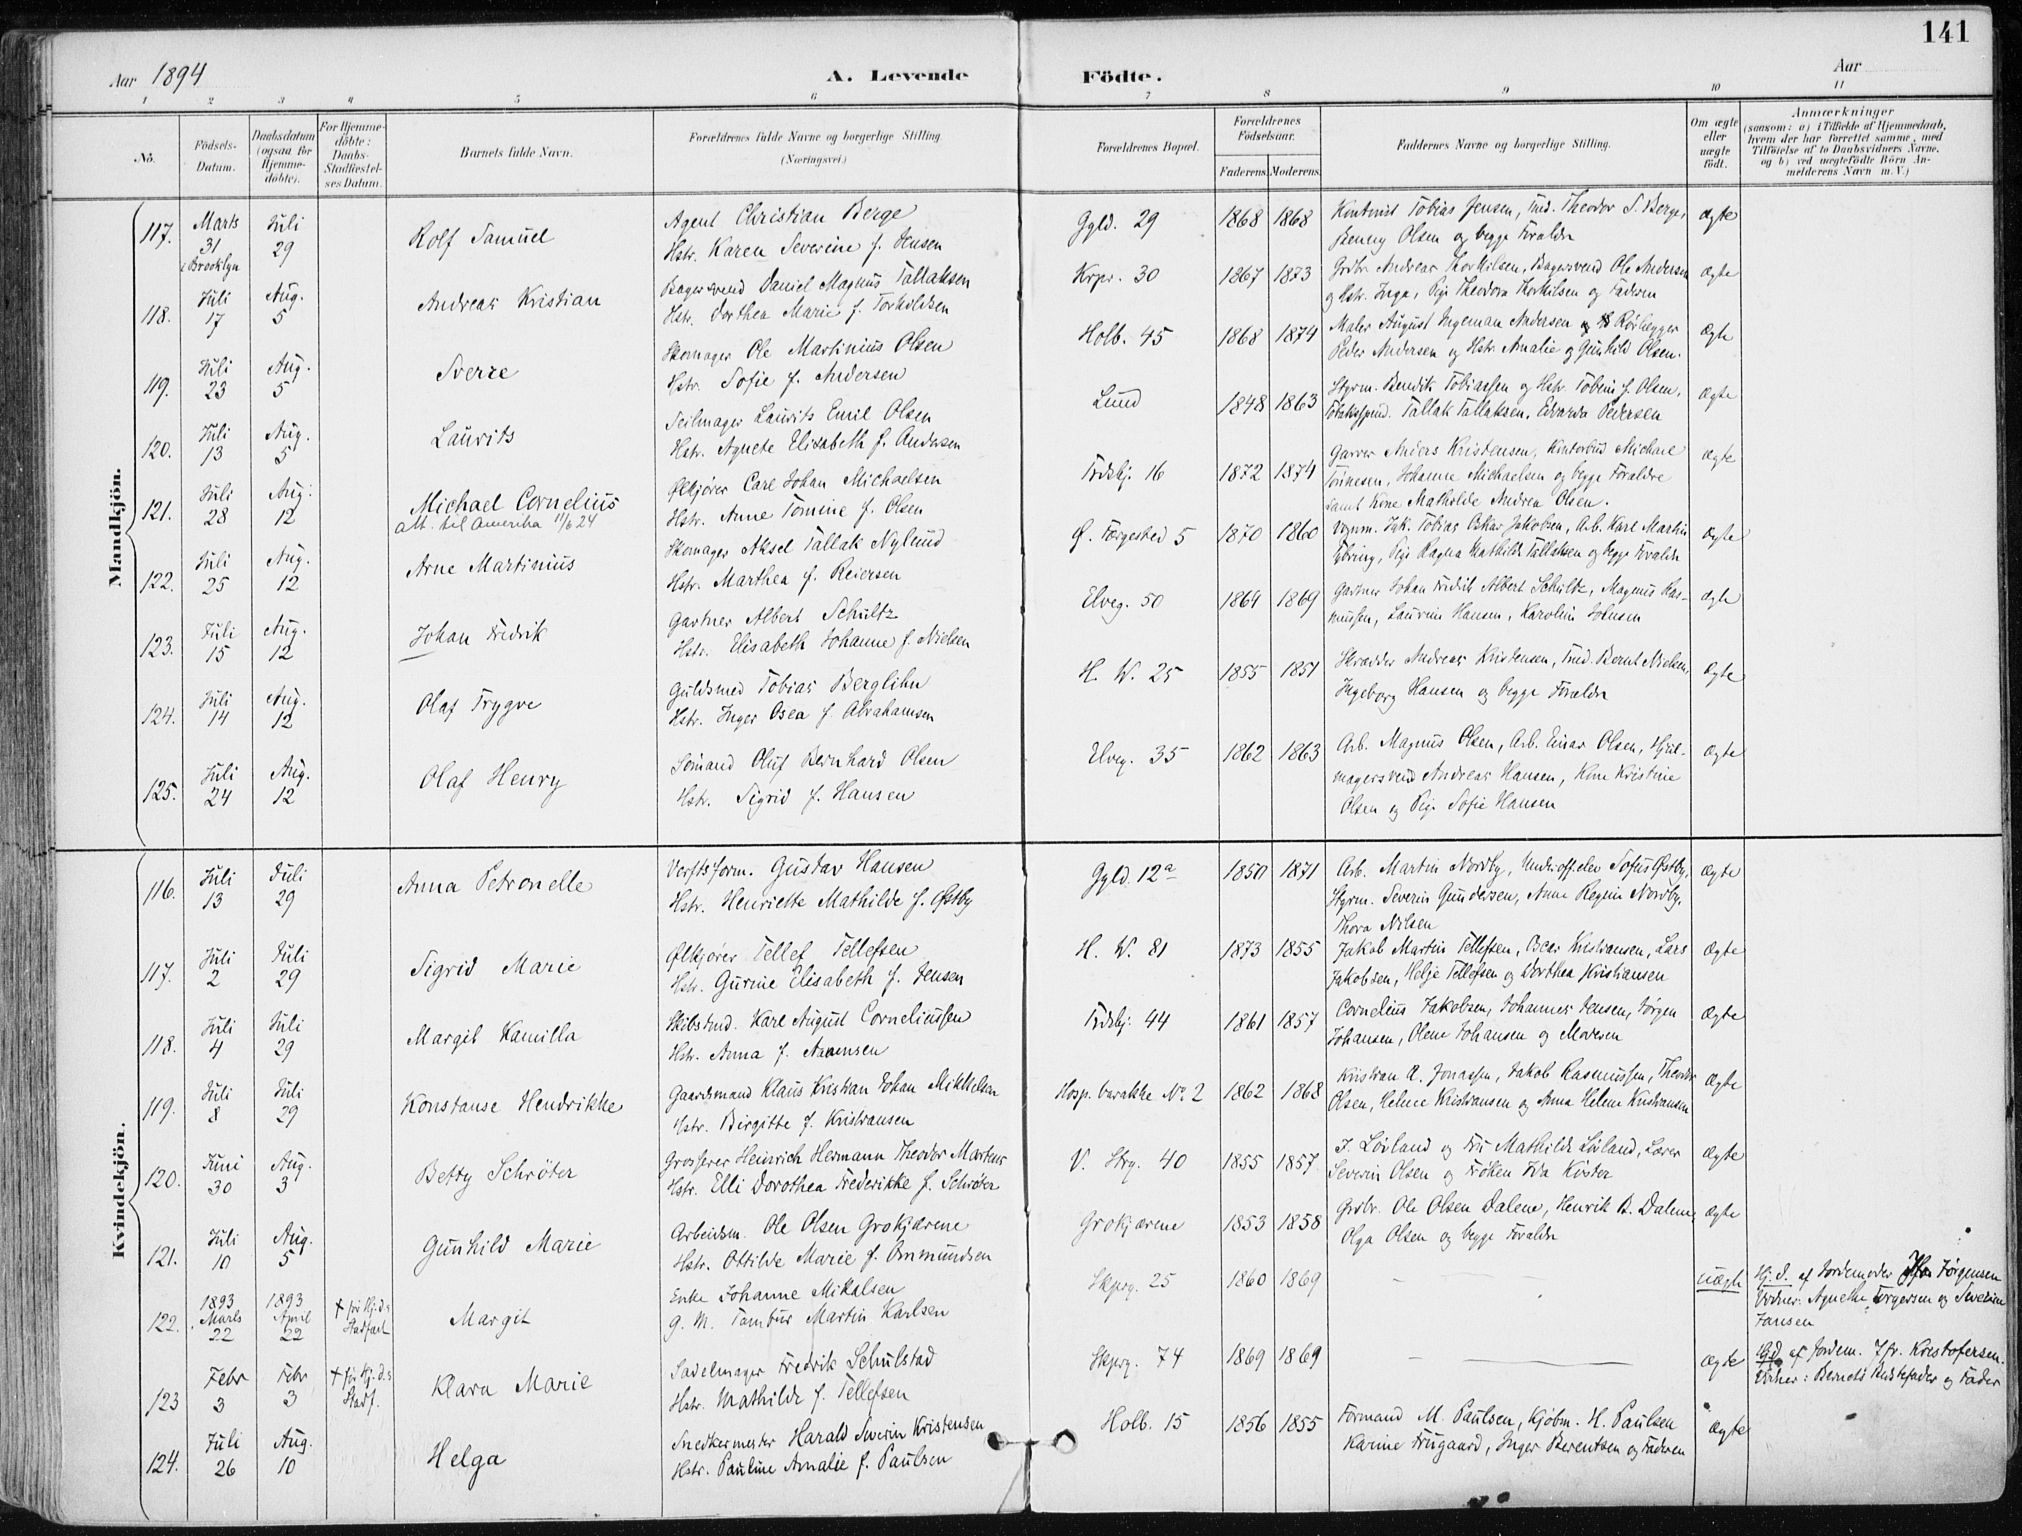 141
Aar 1894
A. Levende Födte.
Aar
1 2 3 4 5 6 7 8 9 10 11
No.
Födsels-Datum.
Daabsdatum (ogsaa for Hjemme-döbte).
For Hjemme-döbte: Daabs-Stadfæstel-ses Datum.
Barnets fulde Navn.
Forældrenes fulde Navne og borgerlige Stilling. (Næringsvei.)
Forældrenes Bopæl.
Forældrenes Födselsaar.
Faderens. Moderens.
Faddernes Navne og borgerlige Stilling.
Om ægte eller uægte födt.
Anmærkninger
(saasom: a) i Tilfælde af Hjemmedaab, hvem der har forrettet samme, med Tilföielse af to Daabsvidners Navne, og b) ved uægtefödte Börn An-melderens Navn m. V.)
Mandkjön.
117. Marts 31 i Brooklyn Juli 29 Rolf Samuel
Agent Christian Berge
Hstr. Karen Severine f. Jensen
Gyld. 29 1868 1868
Kontorist Tobias Jensen, Tmd. Theodor S. Berge,
Jenny Olsen og begge Foraldre
ægte
118. Juli 17 Aug. 5 Andreas Kristian
Bagersvend Daniel Magnus Tallaksen
Hstr. Dorthea Marie f. Torkildsen
Krpr. 30 1867 1873
Grdbr. Andreas Thorkilsen, Bagersvend Ole Andersen
og Hstr. Inga, Pige Theodora Thorkilsen og Faderen
ægte
119. Juli 23 Aug. 5 Sverre
Skomager Ole Martinius Olsen
Hstr. Sofie f. Andersen
Holb. 45 1868 1874
Maler August Ingeman Andersen og Rørlegger
Peder Andersen og Hstr. Amalie og Gunhild Olsen.
ægte
120. Juli 13 Aug. 5 Laurits
Seilmager Laurits Emil Olsen
Hstr. Agnete Elisabeth f. Andersen
Lund 1848 1863
Styrm. Bendik Tobiassen og Hstr. Tobine f. Olsen,
Tallak Tallaksen, Edvarda Pedersen
ægte
121. Juli 28 Aug. 12 Michael Cornelius
att. til Amerika 11/6 24
Ølkjører Carl Johan Michaelsen
Hstr. Anne Tomine f. Olsen
Trdsbj. 16 1872 1874
Garver Anders Kristensen, Kontorbud Michael
Tønnesen, Johanne Michaelsen og begge Foraldre
samt Kone Mathilde Andrea Olsen.
ægte
122. Juli 25 Aug. 12 Arne Martinius
Skomager Aksel Tallak Nylund
Hstr. Marthea f. Reiersen
Ø. Færgested 5 1870 1860
Vognm. Jak. Tobias Oskar Jakobsen, Arb. Karl Martin
Pige Ragna Mathilde Tallaksen og begge Foraldre
ægte
123. Juli 15 Aug. 12 Johan Fredrik
Gartner Albert Schultz
Hstr. Elisabeth Johanne f. Nielsen
Elveg. 50 1864 1869
Gartner Johan Fredrik Albert Schultz, Magnus Ras-
mussen, Laurine Hansen, Karoline Johnsen
ægte
124. Juli 14 Aug. 12 Olaf Trygve
Guldsmed Tobias Berglihn
Hstr. Inger Osea f. Abrahamsen
H. W. 25 1855 1851
Skrædder Andreas Kristensen, Tmd. Bernt Nielsen,
Ingeborg Hansen og begge Foraldre
ægte
125. Juli 24 Aug. 12 Olaf Henry
Sømand Oluf Bernhard Olsen
Hstr. Sigrid f. Hansen
Elveg. 35 1862 1863
Arb. Magnus Olsen, Arb. Einar Olsen, Hjul-
magersvend Andreas Hansen, Kone Kristine
Olsen og Pige Sofie Hansen
ægte
Kvindekjön.
116. Juli 13 Juli 29 Anna Petronelle
Verftsform. Gustav Hansen
Hstr. Henriette Mathilde f. Østby
Gyld. 12a 1850 1871
Arb. Martin Nordby, Underoff.elev Sofus Østby,
Styrm. Severin Gundersen, Anne Regine Nordby,
Thora Nilsen
ægte
117. Juli 2 Juli 29 Sigrid Marie
Ølkjører Tellef Tellefsen
Hstr. Gurine Elisabeth f. Jensen
H. W. 81 1873 1855
Jakob Martin Tellefsen, Oscar Kristiansen, Lars
Jakobsen, Helje Tellefsen og Dorthea Kristiansen
ægte
118. Juli 4 Juli 29 Margit Kamilla
Skibstmd. Karl August Corneliussen
Hstr. Anna f. Aamsen
Trdsbj. 44 1861 1857
Cornelius Jakobsen, Johannes Jensen, Jørgen
Johansen, Olene Johansen og Moderen
ægte
119. Juli 8 Juli 29 Konstanse Hendrikke
Gaardsmand Klaus Kristian Johan Mikkelsen
Hstr. Birgitte f. Kristiansen
Hosp. barakke No. 2 1862 1868
Kristian A. Jonassen, Jakob Rasmussen, Theodor
Olsen, Helene Kristiansen og Anna Helene Kristiansen
ægte
120. Juni 30 Aug. 3 Betty Schrøter
Grosserer Heinrich Hermann Theodor Martens
Hstr. Elli Dorothea Frederikke f. Schrøter
V. Strg. 40 1855 1857
I. Løvland og Fru Mathilde Løvland, Lærer
Severin Olsen og Frøken Ida Køster
ægte
121. Juli 10 Aug. 5 Gunhild Marie
Arbeidsm. Ole Olsen Grokjærene
Hstr. Ottilde Marie f. Ommundsen
Grokjærene 1853 1858
Grdbr. Ole Olsen Dalene, Henrik B. Dalene,
Olga Olsen og begge Foraldre
ægte
122. 1893 Marts 22 1893 April 22 † før Hj.d.s Stadfæst Margit
Enke Johanne Mikalsen
G. M. Tambur Martin Karlsen
Skprg. 25 1860 1869
uægte
Hj. d. af Jordemoder Jørgensen
Vidner: Agnethe Torgersen og Severine
Jansen
123 Febr 3 Febr 3 † før Hj.d.s Stadf. Klara Marie
Sadelmager Fredrik Schulstad
Hstr. Mathilde f. Tellefsen
Skprg. 74 1869 1869
ægte
Hj.d. af Jordem. Jfr. Kristofersen.
Vidner: Bernets Bedstefader og Fader
124. Juli 26 Aug. 10 Helga
Snedkermester Harald Severin Kristensen
Hstr. Pauline Amalie f. Paulsen
Holb. 15 1856 1855
Formand M. Paulsen, Kjøbm. H. Paulsen
Karine Frugaard, Inger Berentsen og Faderen
ægte